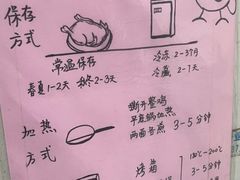 保存
方式
常温保存
春夏1-2天 秋冬2-3天
冷冻 2-3个月
冷藏 2-7天
加热
方式
撕开整鸡
平底锅加热
两面各煎 3-5分钟
烤箱
180℃-200℃
3-5分钟